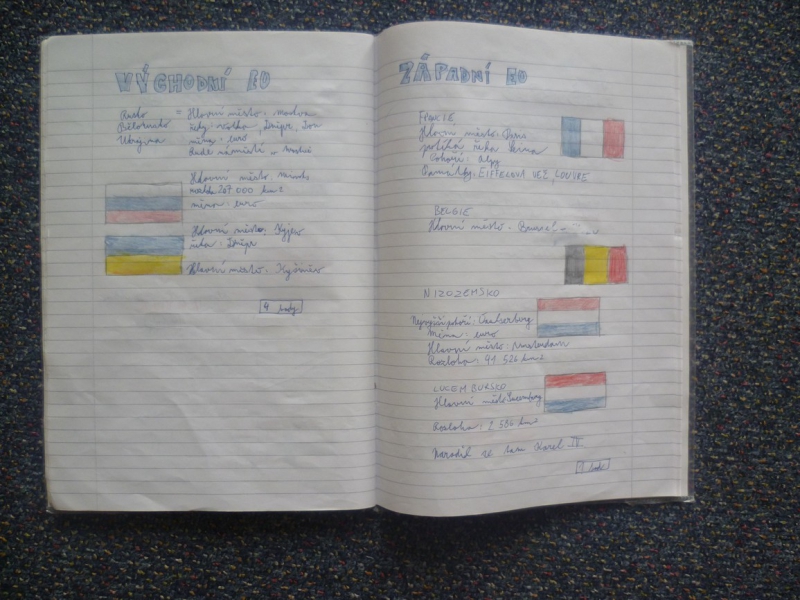 VÝCHODNÍ EU
Rusko = Hlavní město: moskva
Bělorusko řeky: volha, Dněpr, Don
Ukrajina měna: euro
Rudé náměstí
Hlavní město: minsk
rozloha 207 000 km2
měna: euro
Hlavní město: Kyjev
řeka: Dněpr
Hlavní město: Kyšiněv
ZÁPADNÍ EU
FRANCIE
Hlavní město: Paris
protíká řeka Seina
Pohoří: alpy
Památky: EIFFELOVA VĚŽ, LOUVRE
BELGIE
Hlavní město: Brusel
NIZOZEMSKO
Nejvyšší pohoří: Vaalserberg
Měna: euro
Hlavní město: Amsterdam
Rozloha: 41 526 km2
LUCEMBURSKO
Hlavní město: Luxemburg
Rozloha: 2 586 km2
Narodil se tam Karel IV